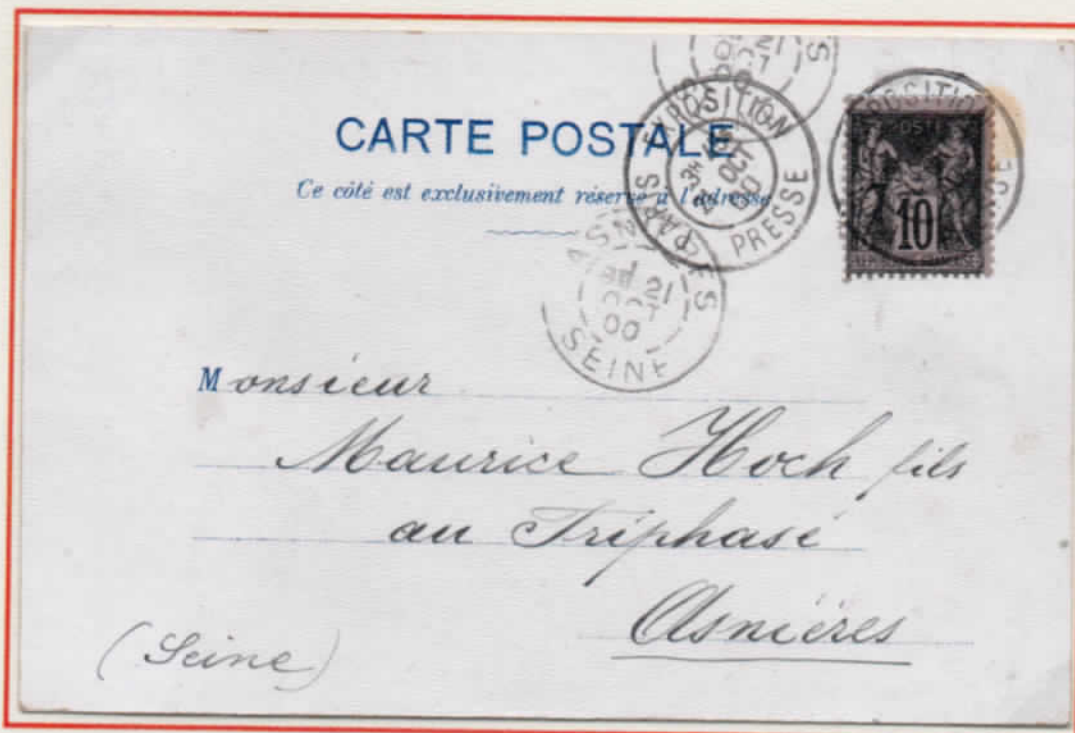 CARTE POSTALE
Ce côté est exclusivement réservé à l'adresse
PARIS EXPOSITION
PRESSE
OCT
00
EXPOSITION
PRESSE
POSTE
10
21
OCT
ASNIERES
21
OCT
00
SEINE
Monsieur
Maurice Hoch fils
au Triphasé
Asnières
(Seine)